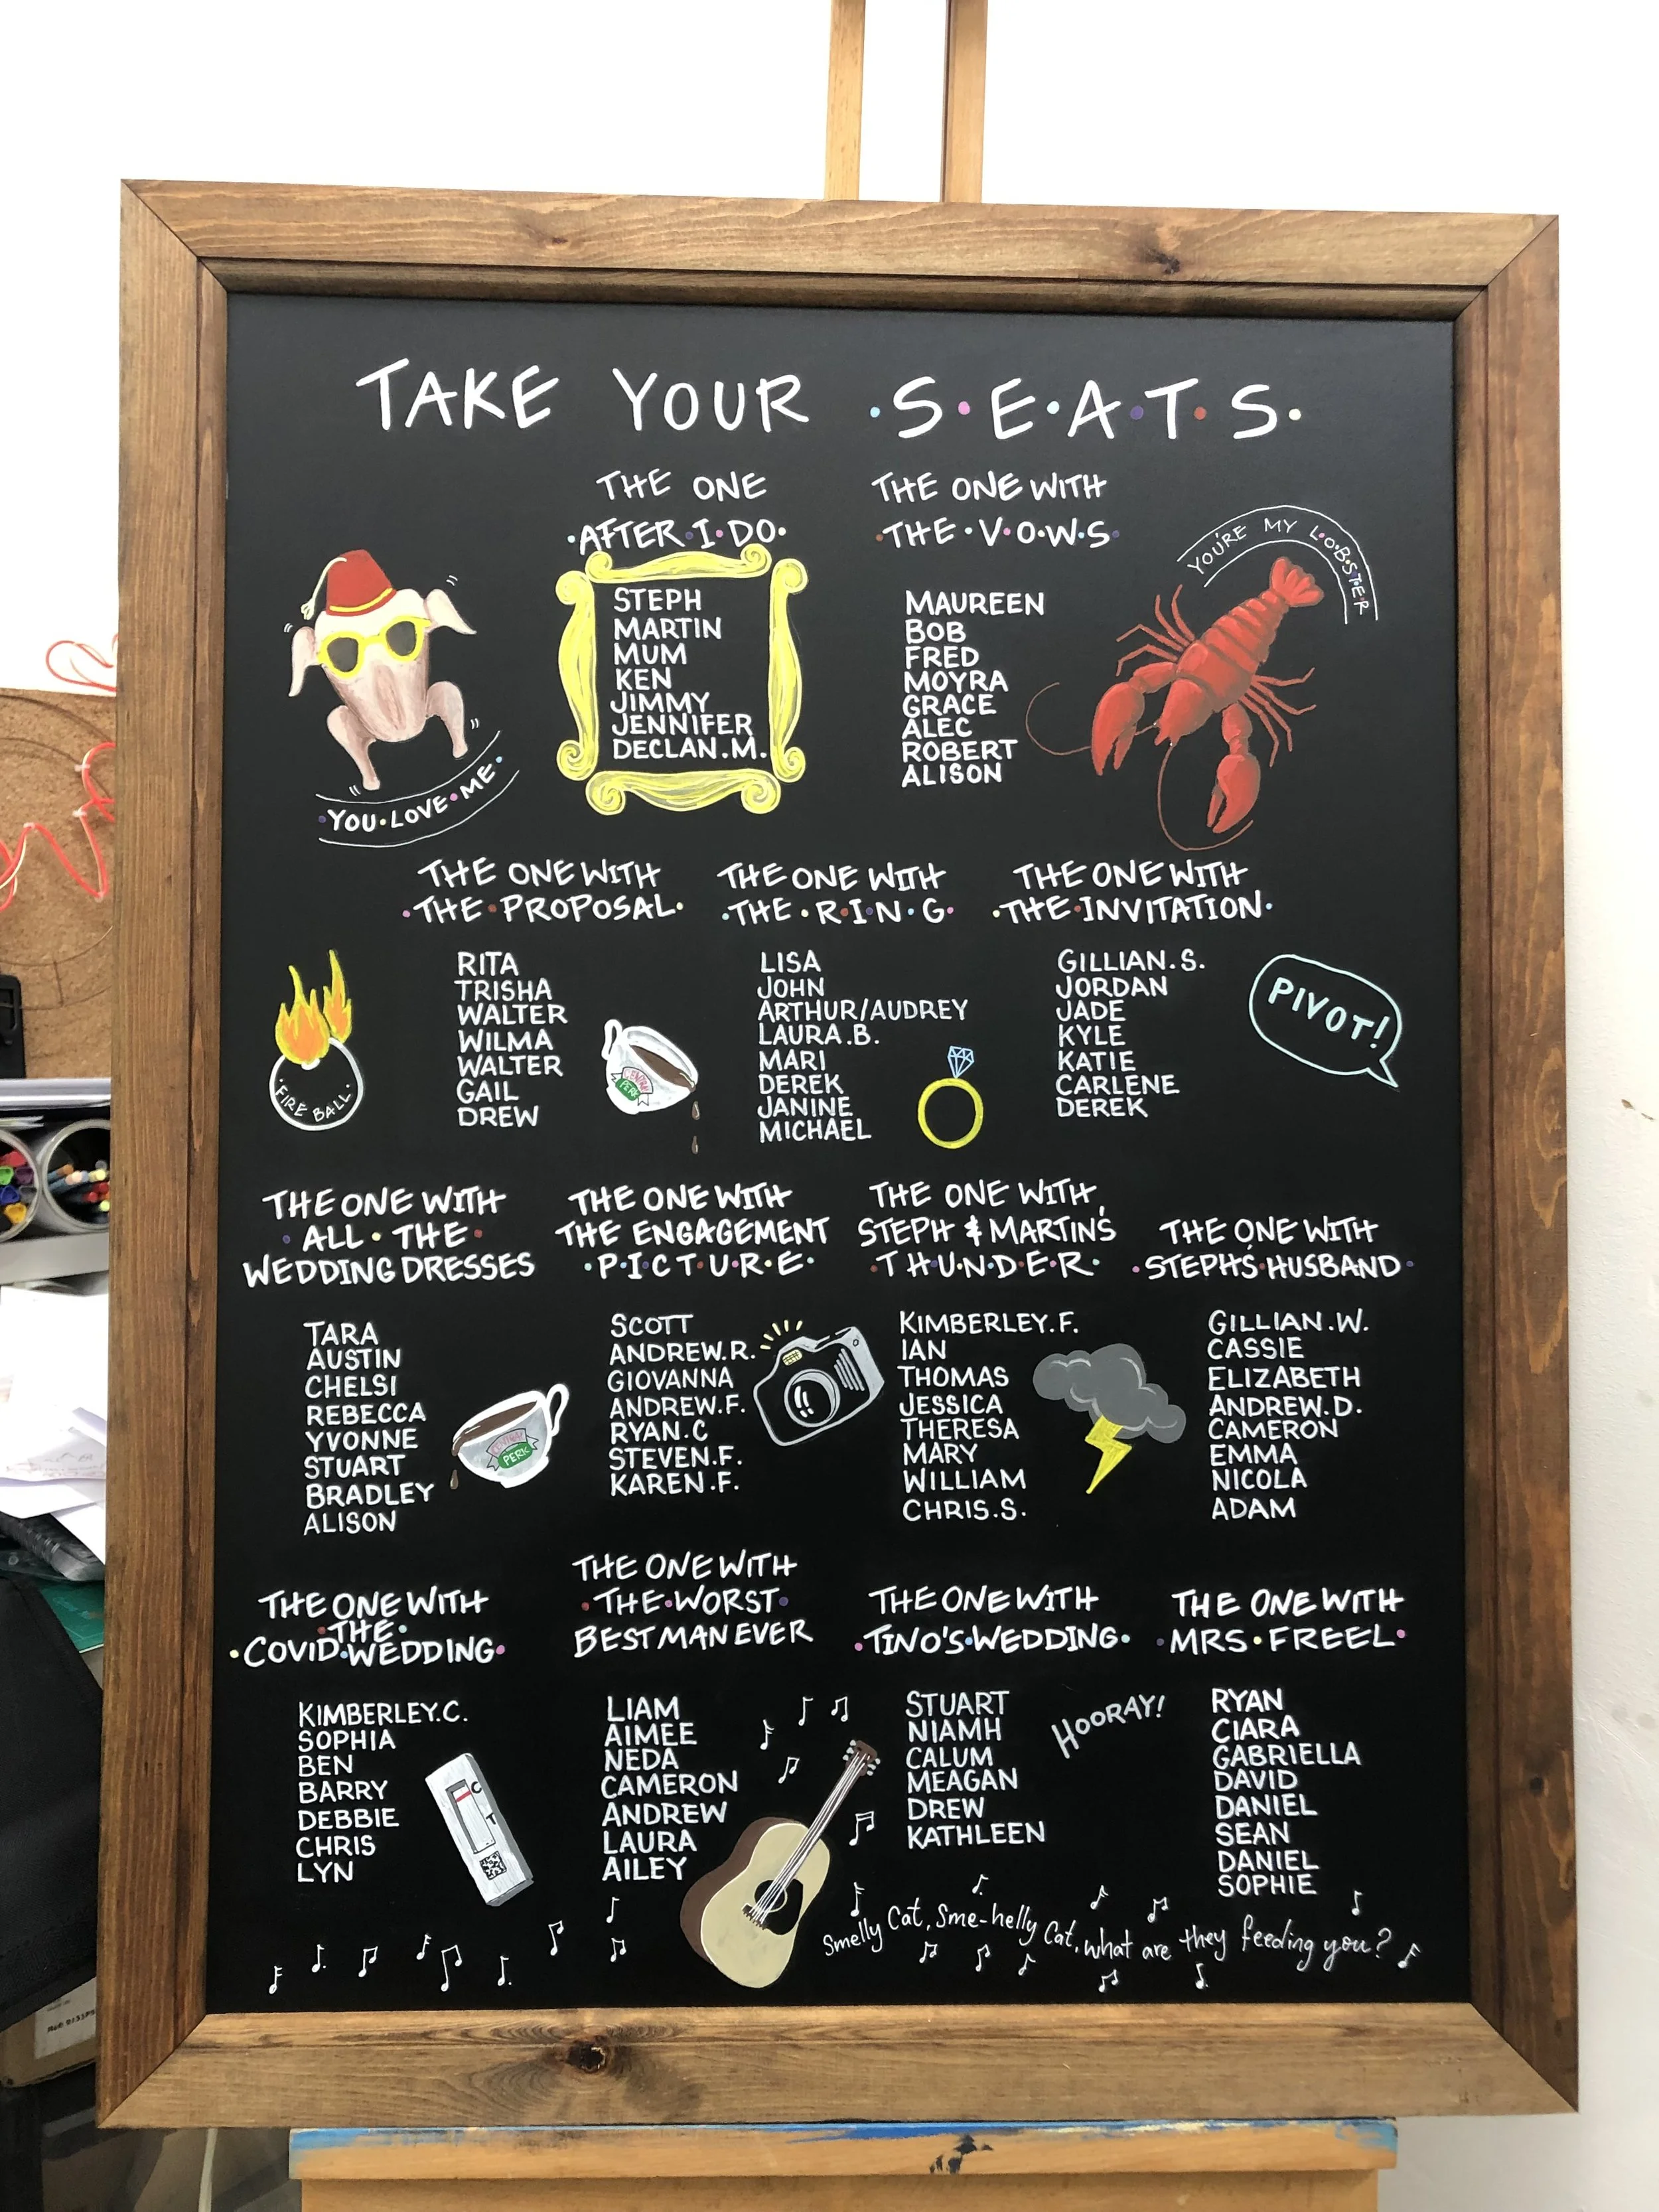 TAKE YOUR ·S·E·A·T·S·
THE ONE
·AFTER·I·DO·
STEPH
MARTIN
MUM
KEN
JIMMY
JENNIFER
DECLAN.M.
THE ONE WITH
·THE·V·O·W·S·
MAUREEN
BOB
FRED
MOYRA
GRACE
ALEC
ROBERT
ALISON
YOU'RE MY L·O·B·S·T·E·R
·YOU·LOVE·ME·
THE ONE WITH
·THE·PROPOSAL·
RITA
TRISHA
WALTER
WILMA
WALTER
GAIL
DREW
·FIRE BALL·
CENTRAL
PERK
THE ONE WITH
·THE·R·I·N·G·
LISA
JOHN
ARTHUR/AUDREY
LAURA.B.
MARI
DEREK
JANINE
MICHAEL
THE ONE WITH
·THE·INVITATION·
GILLIAN.S.
JORDAN
JADE
KYLE
KATIE
CARLENE
DEREK
PIVOT!
THE ONE WITH
·ALL·THE·
WEDDING DRESSES
TARA
AUSTIN
CHELSI
REBECCA
YVONNE
STUART
BRADLEY
ALISON
CENTRAL
PERK
THE ONE WITH
THE ENGAGEMENT
·P·I·C·T·U·R·E·
SCOTT
ANDREW.R.
GIOVANNA
ANDREW.F.
RYAN.C
STEVEN.F.
KAREN.F.
THE ONE WITH
STEPH & MARTIN'S
·T·H·U·N·D·E·R·
KIMBERLEY.F.
IAN
THOMAS
JESSICA
THERESA
MARY
WILLIAM
CHRIS.S.
THE ONE WITH
·STEPH'S·HUSBAND·
GILLIAN.W.
CASSIE
ELIZABETH
ANDREW.D.
CAMERON
EMMA
NICOLA
ADAM
THE ONE WITH
·THE·
·COVID·WEDDING·
KIMBERLEY.C.
SOPHIA
BEN
BARRY
DEBBIE
CHRIS
LYN
C
T
THE ONE WITH
·THE·WORST·
BEST MAN EVER
LIAM
AIMEE
NEDA
CAMERON
ANDREW
LAURA
AILEY
THE ONE WITH
·TINO'S·WEDDING·
STUART
NIAMH
CALUM
MEAGAN
DREW
KATHLEEN
HOORAY!
THE ONE WITH
·MRS·FREEL·
RYAN
CIARA
GABRIELLA
DAVID
DANIEL
SEAN
DANIEL
SOPHIE
Smelly Cat, Sme-helly Cat, what are they feeding you?